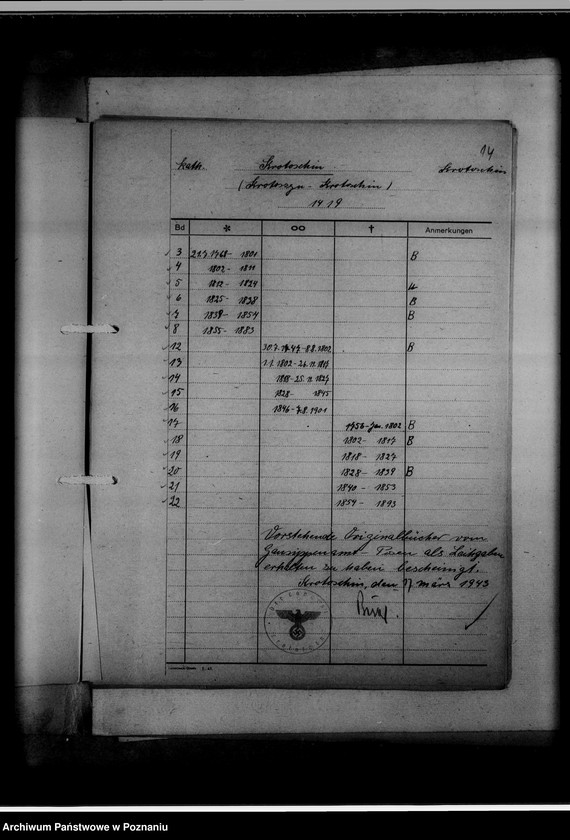 14
kath. Krotoschin Krotoschin
(Krotoszyn - Krotoschin)
1419
Bd * ∞ † Anmerkungen
3 21.7.1768 - 1801 B
4 1802 - 1811
5 1812 - 1824
6 1825 - 1838 B
7 1838 - 1854 B
8 1855 - 1883
12 30.7.1747 - 8.8.1802 B
13 1.1.1802 - 26.11.1817
14 1818 - 25.11.1827
15 1828 - 1845
16 1846 - 7.8.1901
17 1756 - Jan. 1802 B
18 1802 - 1817 B
19 1818 - 1827
20 1828 - 1839 B
21 1840 - 1853
22 1854 - 1893
Vorstehende Originalbücher vom
Gausippenamt - Posen als Leihgaben
erhalten zu haben bescheinigt.
Krotoschin, den März 1943
Archiwum Państwowe w Poznaniu